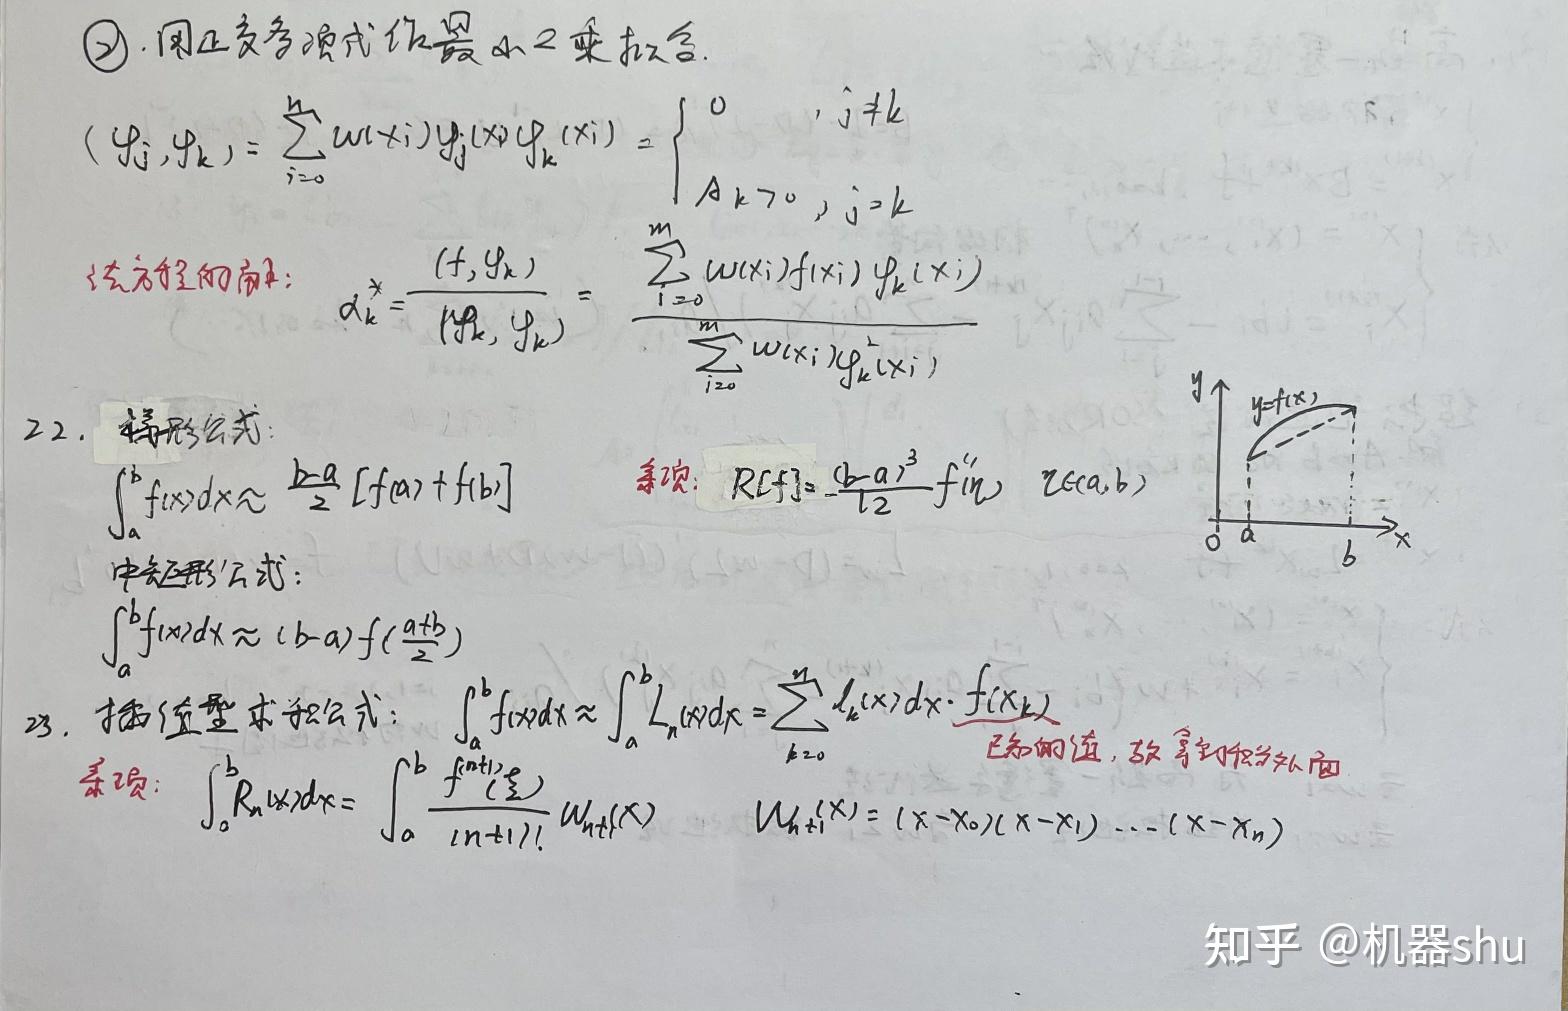 ②. 用正交多项式作最小2乘拟合.
(φj, φk) = ∑_{i=0}^{n} W(xi)φj(xi)φk(xi) = { 0 , j≠k
Ak>0 , j=k
法方程的解: αk* = (f, φk) / (φk, φk) = ∑_{i=0}^{m} W(xi)f(xi)φk(xi) / ∑_{i=0}^{m} W(xi)φk²(xi)
22. 梯形公式:
∫_a^b f(x)dx ≈ (b-a)/2 [f(a)+f(b)] 余项: R[f] = -(b-a)³/12 f''(η) η∈(a,b)
y
y=f(x)
0 a b x
中矩形公式:
∫_a^b f(x)dx ≈ (b-a) f((a+b)/2)
23. 插值型求积公式: ∫_a^b f(x)dx ≈ ∫_a^b Ln(x)dx = ∑_{k=0}^{n} lk(x)dx · f(xk)
已知的值, 故拿到积分外面
余项: ∫_a^b Rn(x)dx = ∫_a^b f^(n+1)(ξ) / (n+1)! Wn+1(x) Wn+1(x) = (x-x0)(x-x1) ... (x-xn)
知乎 @机器shu